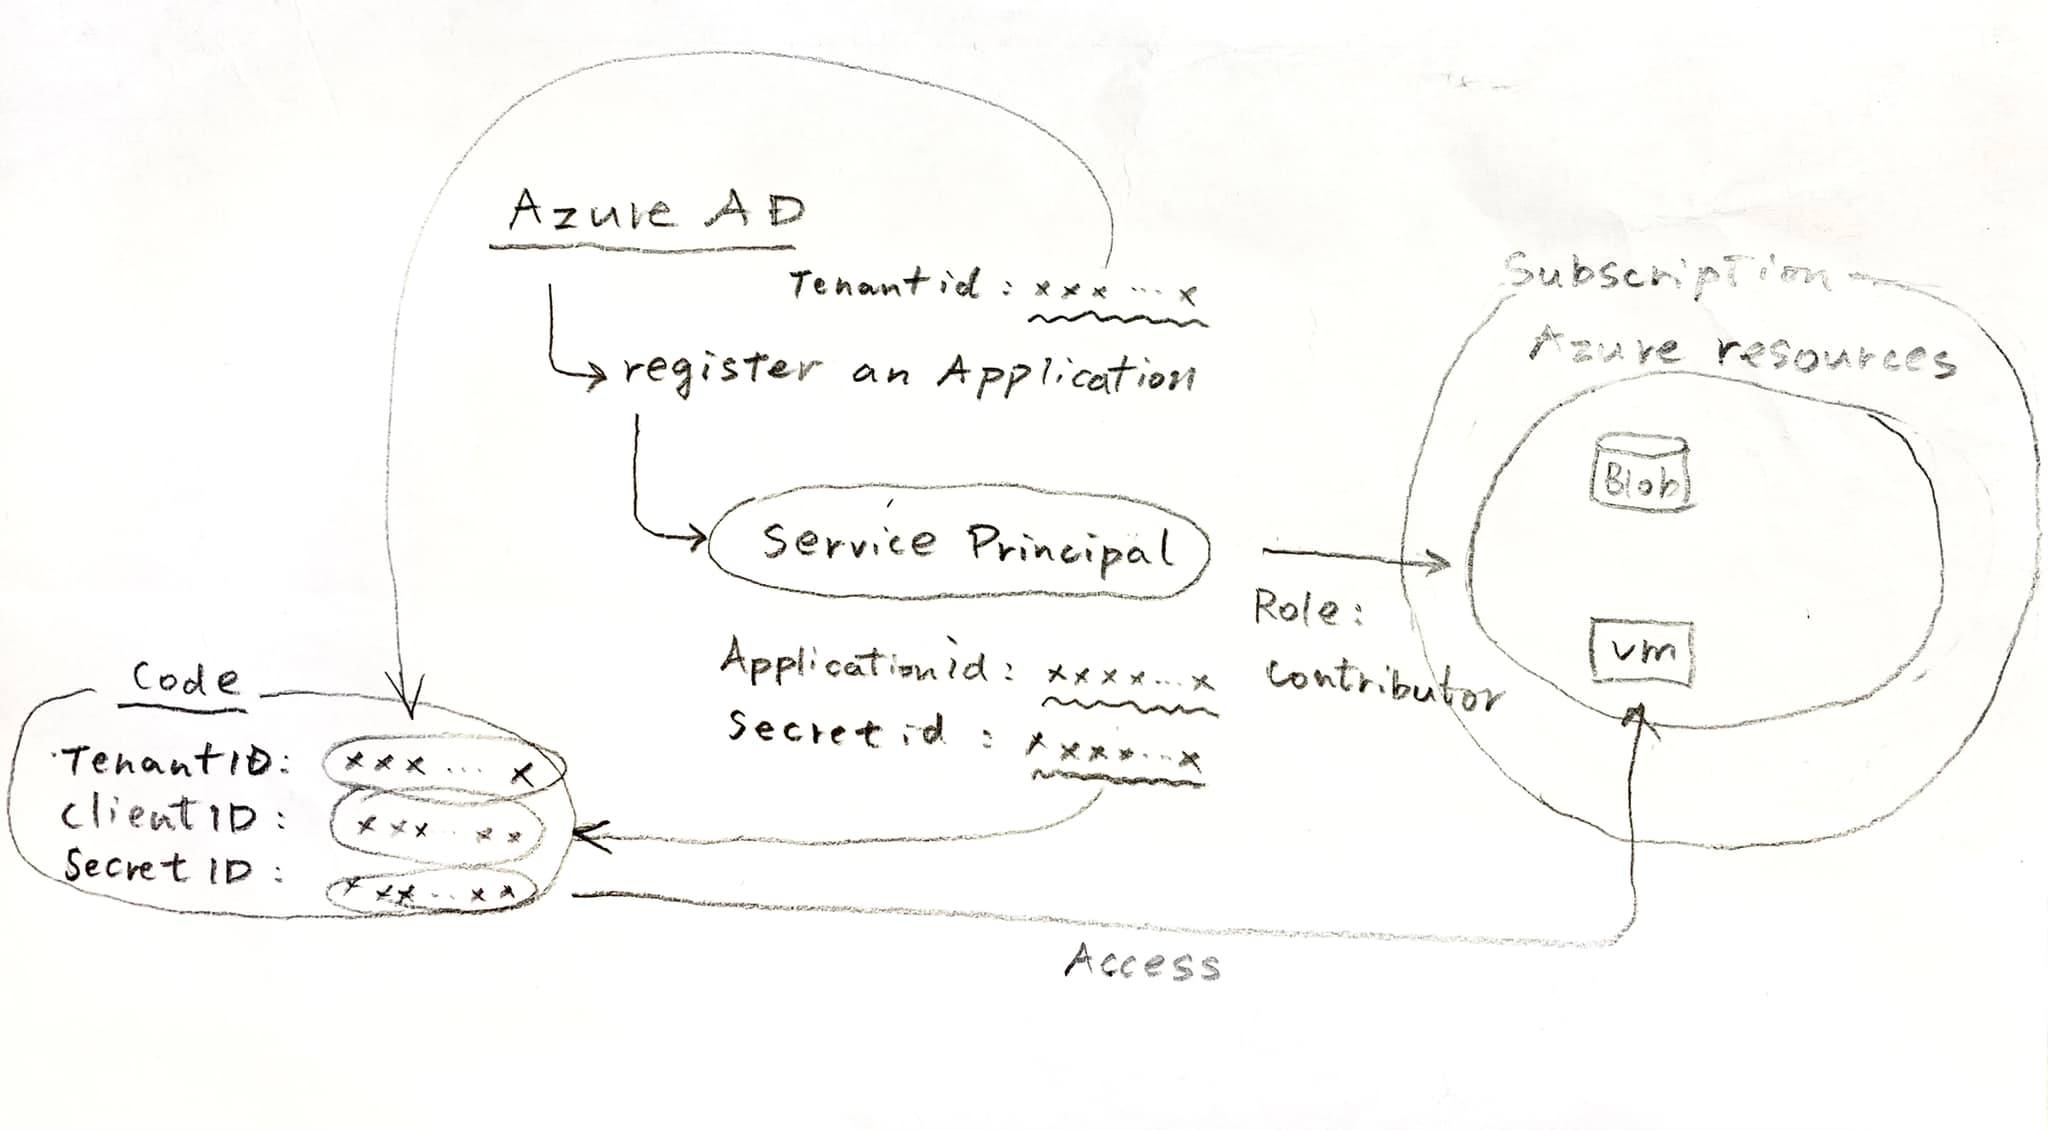 Azure AD
Tenant id : x x x ... x
register an Application
Service Principal
Application id : x x x x ... x
Secret id : x x x x ... x
Role :
Contributor
Subscription
Azure resources
Blob
VM
Code
Tenant ID : x x x ... x
Client ID : x x x .. x x
Secret ID : x x x ... x x
Access